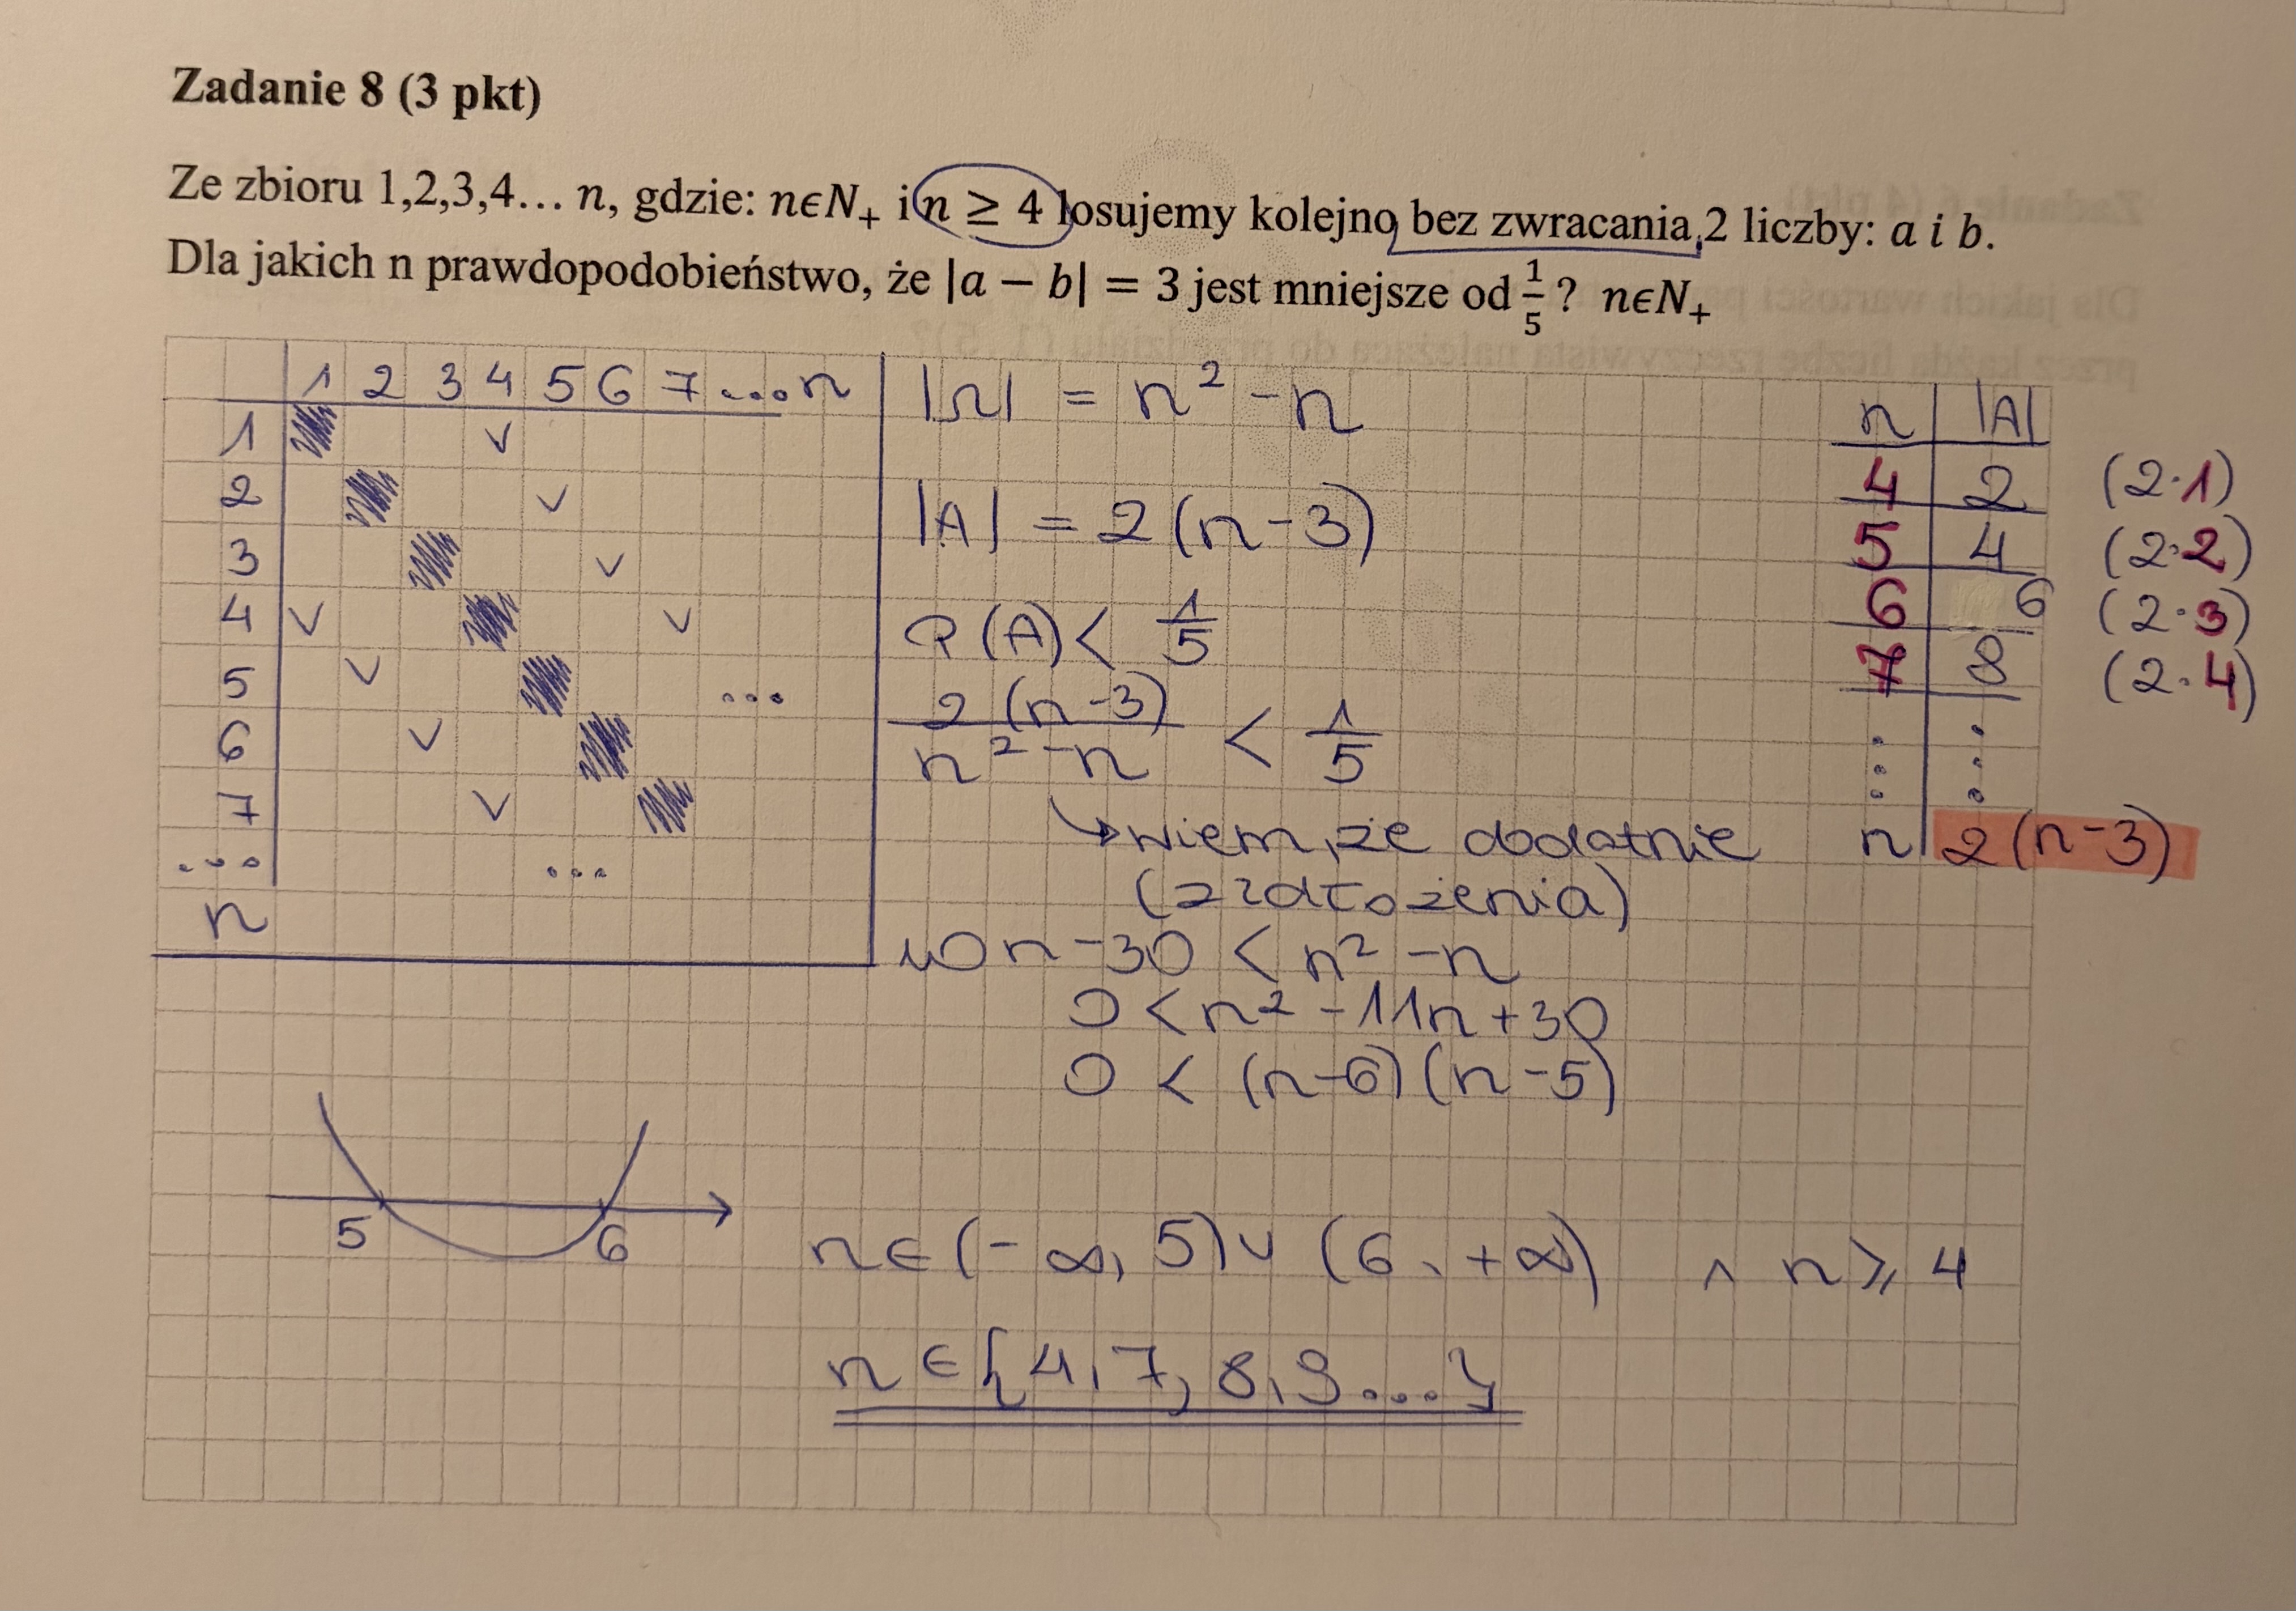 Zadanie 8 (3 pkt)
Ze zbioru 1,2,3,4… n, gdzie: nϵN₊ i n ≥ 4 losujemy kolejno bez zwracania 2 liczby: a i b.
Dla jakich n prawdopodobieństwo, że |a − b| = 3 jest mniejsze od 1/5 ? nϵN₊
1 2 3 4 5 6 7 ... n
1 v
2 v
3 v
4 v v
5 v ...
6 v
7 v
... ...
n
|Ω| = n² - n
|A| = 2(n-3)
P(A) < 1/5
2(n-3)/(n²-n) < 1/5
↳ wiem, że dodatnie
(z założenia)
10n - 30 < n² - n
0 < n² - 11n + 30
0 < (n-6)(n-5)
n | |A|
4 | 2 (2·1)
5 | 4 (2·2)
6 | 6 (2·3)
7 | 8 (2·4)
⋮ | ⋮
n | 2(n-3)
5 6
n ∈ (-∞, 5) ∪ (6, +∞) ∧ n ≥ 4
n ∈ {4, 7, 8, 9...}